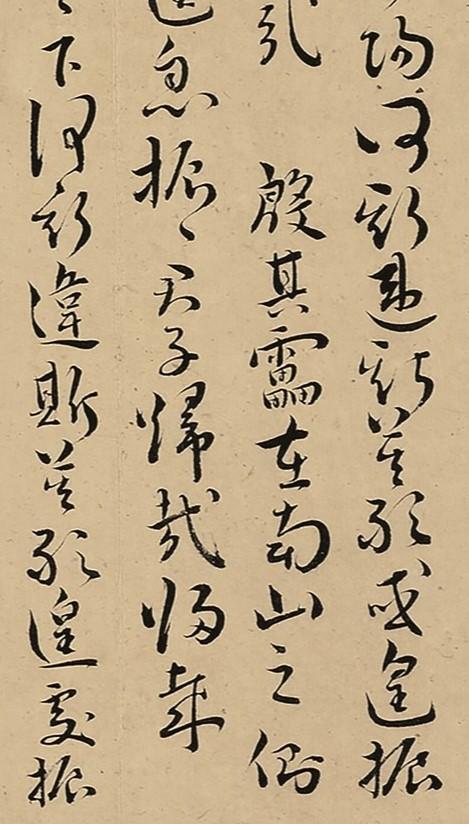 陽何斯違斯莫敢或遑振
哉 殷其靁在南山之側
遑息振〻君子歸哉歸哉
下何斯違斯莫敢遑處振